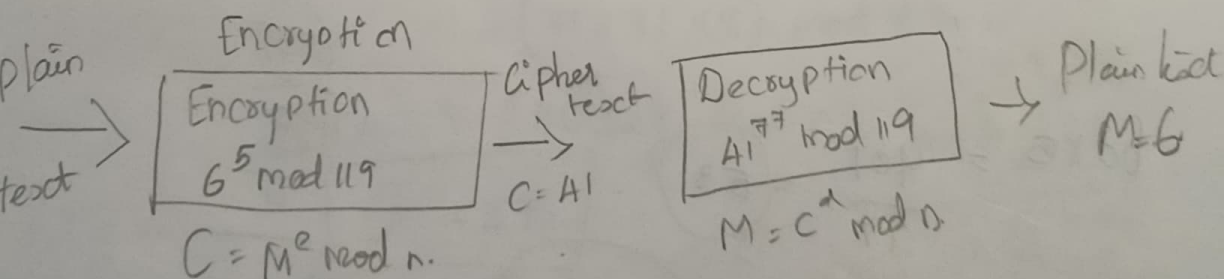 Encryption
Plain
text
Encryption
6^5 mod 119
C = M^e mod n.
Cipher
text
C = 41
Decryption
41^77 mod 119
M = C^d mod n.
Plain text
M = 6